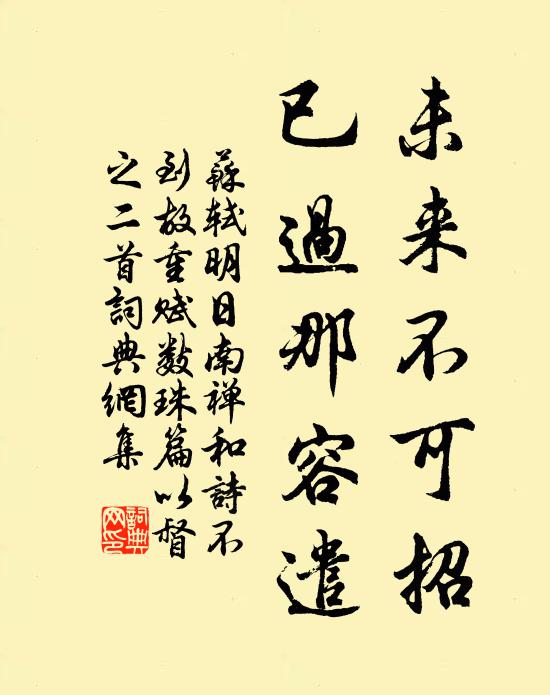 未来不可招
已過那容遣
蘇軾明日南禅和詩不
到故重赋数珠篇以督
之二首詞典網集
詞典
网印